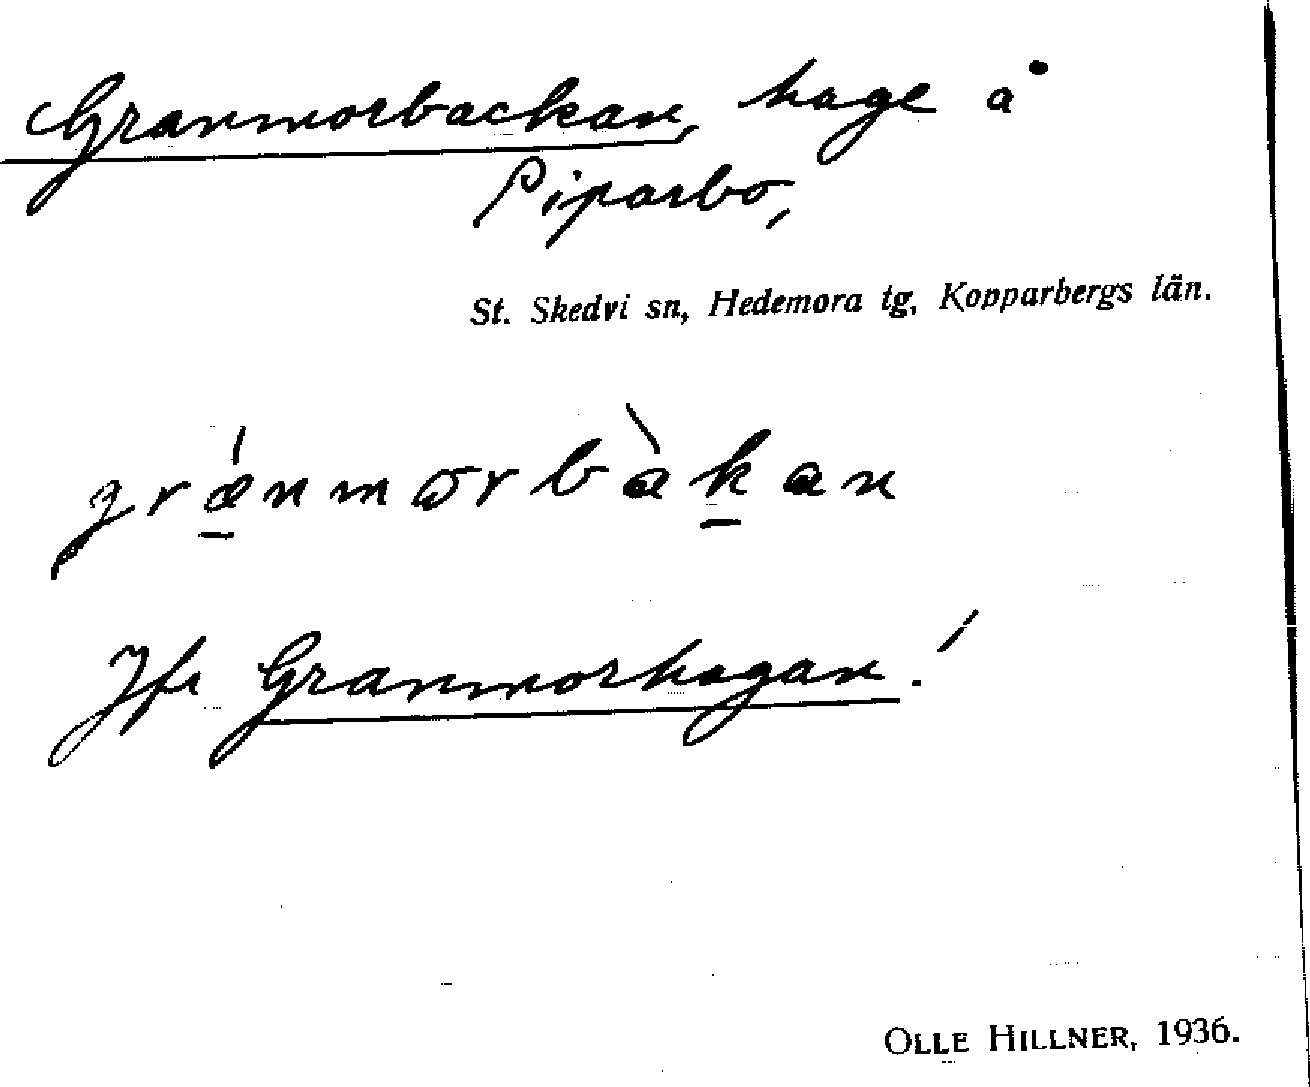 Granmorbackan, hage å
Piparbo,
St. Skedvi sn, Hedemora tg, Kopparbergs län.
grǽnmorbàkan
Jfr Granmorhagan!
OLLE HILLNER, 1936.